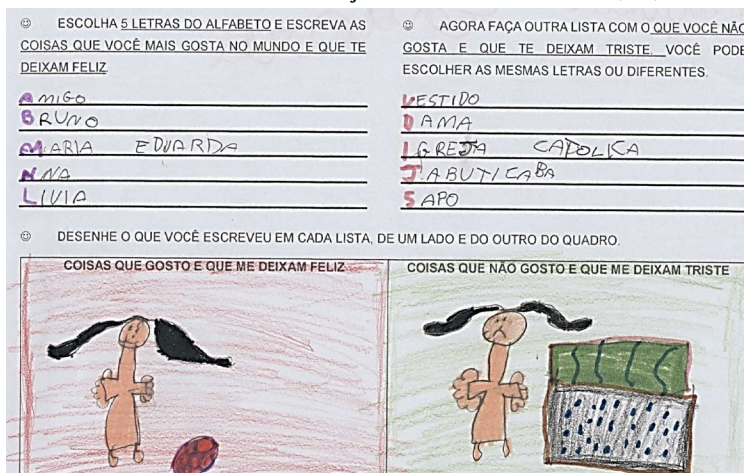 ☺ ESCOLHA 5 LETRAS DO ALFABETO E ESCREVA AS
COISAS QUE VOCÊ MAIS GOSTA NO MUNDO E QUE TE
DEIXAM FELIZ.
AMIGO
BRUNO
MARIA EDUARDA
NNA
LIVIA
☺ AGORA FAÇA OUTRA LISTA COM O QUE VOCÊ NÃO
GOSTA E QUE TE DEIXAM TRISTE. VOCÊ PODE
ESCOLHER AS MESMAS LETRAS OU DIFERENTES.
VESTIDO
DAMA
IGREJA CAPOLICA
JABUTICABA
SAPO
☺ DESENHE O QUE VOCÊ ESCREVEU EM CADA LISTA, DE UM LADO E DO OUTRO DO QUADRO.
COISAS QUE GOSTO E QUE ME DEIXAM FELIZ
COISAS QUE NÃO GOSTO E QUE ME DEIXAM TRISTE